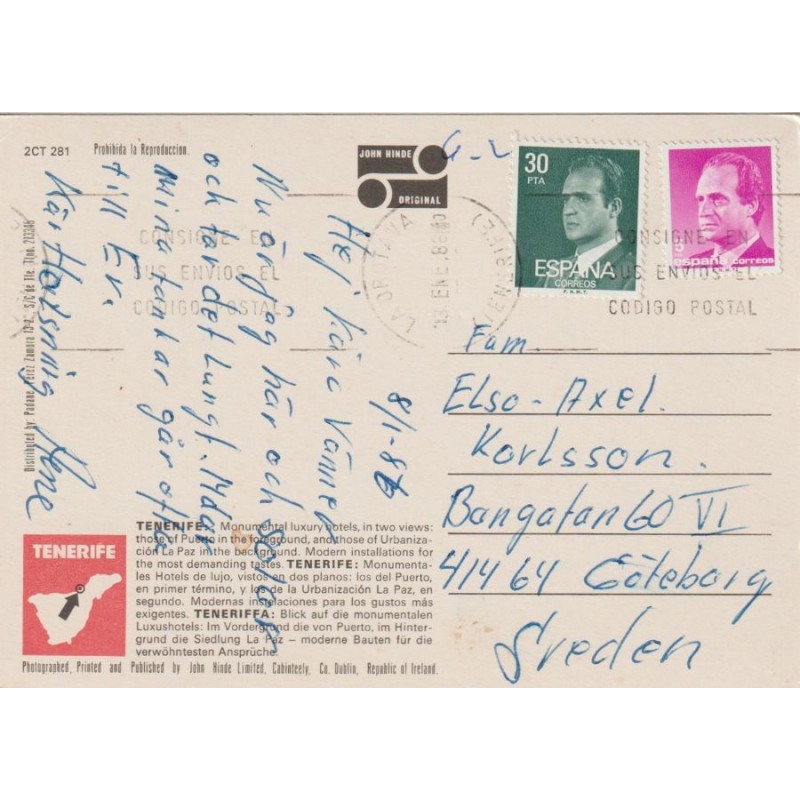 2CT 281
Prohibida la Reproduccion.
JOHN HINDE
ORIGINAL
30
PTA
ESPAÑA
CORREOS
F.N.M.T.
5
españa correos
CONSIGNE EN
SUS ENVIOS EL
CODIGO POSTAL
LA OROTAVA
13 ENE. 86
CONSIGNE EN
SUS ENVIOS EL
CODIGO POSTAL
8/1-86
Hej Kära Vänner
Nu är jag här och
och tar det lungt. Mår
mina tankar går ofta
till Er.
Kär Hälsning
Distributed by: Padano, Perez Zamora S/C de Tfe. Tfno.
Fam.
Elso-Axel.
Karlsson.
Bangatan 60 VI
414 64 Göteborg
Sveden
TENERIFE: Monumental luxury hotels, in two views:
those of Puerto in the foreground, and those of Urbaniza-
ción La Paz in the background. Modern installations for
the most demanding tastes. TENERIFE: Monumenta-
les Hoteles de lujo, vistos en dos planos: los del Puerto,
en primer término, y los de la Urbanización La Paz, en
segundo. Modernas instalaciones para los gustos más
exigentes. TENERIFFA: Blick auf die monumentalen
Luxushotels: Im Vordergrund die von Puerto, im Hinter-
grund die Siedlung La Paz – moderne Bauten für die
verwöhntesten Ansprüche.
TENERIFE
Photographed, Printed and Published by John Hinde Limited, Cabinteely, Co. Dublin, Republic of Ireland.